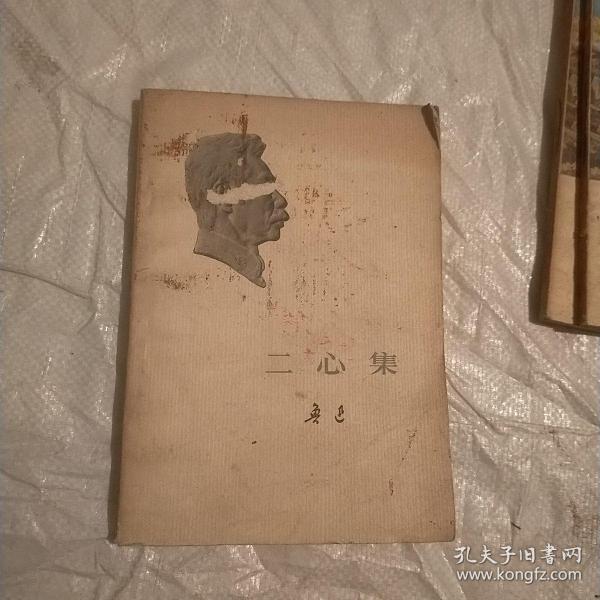 二心集
鲁迅
孔夫子旧书网
www.kongfz.com